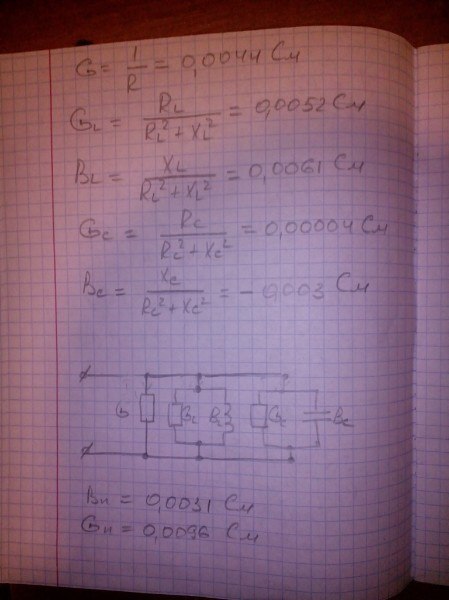 G = 1/R = 0,0044 См
GL = RL/(RL² + XL²) = 0,0052 См
BL = XL/(RL² + XL²) = 0,0061 См
Gc = Rc/(Rc² + Xc²) = 0,00004 См
Bc = Xc/(Rc² + Xc²) = -0,003 См
G GL BL Gc Bc
Bн = 0,0031 См
Gн = 0,0096 См